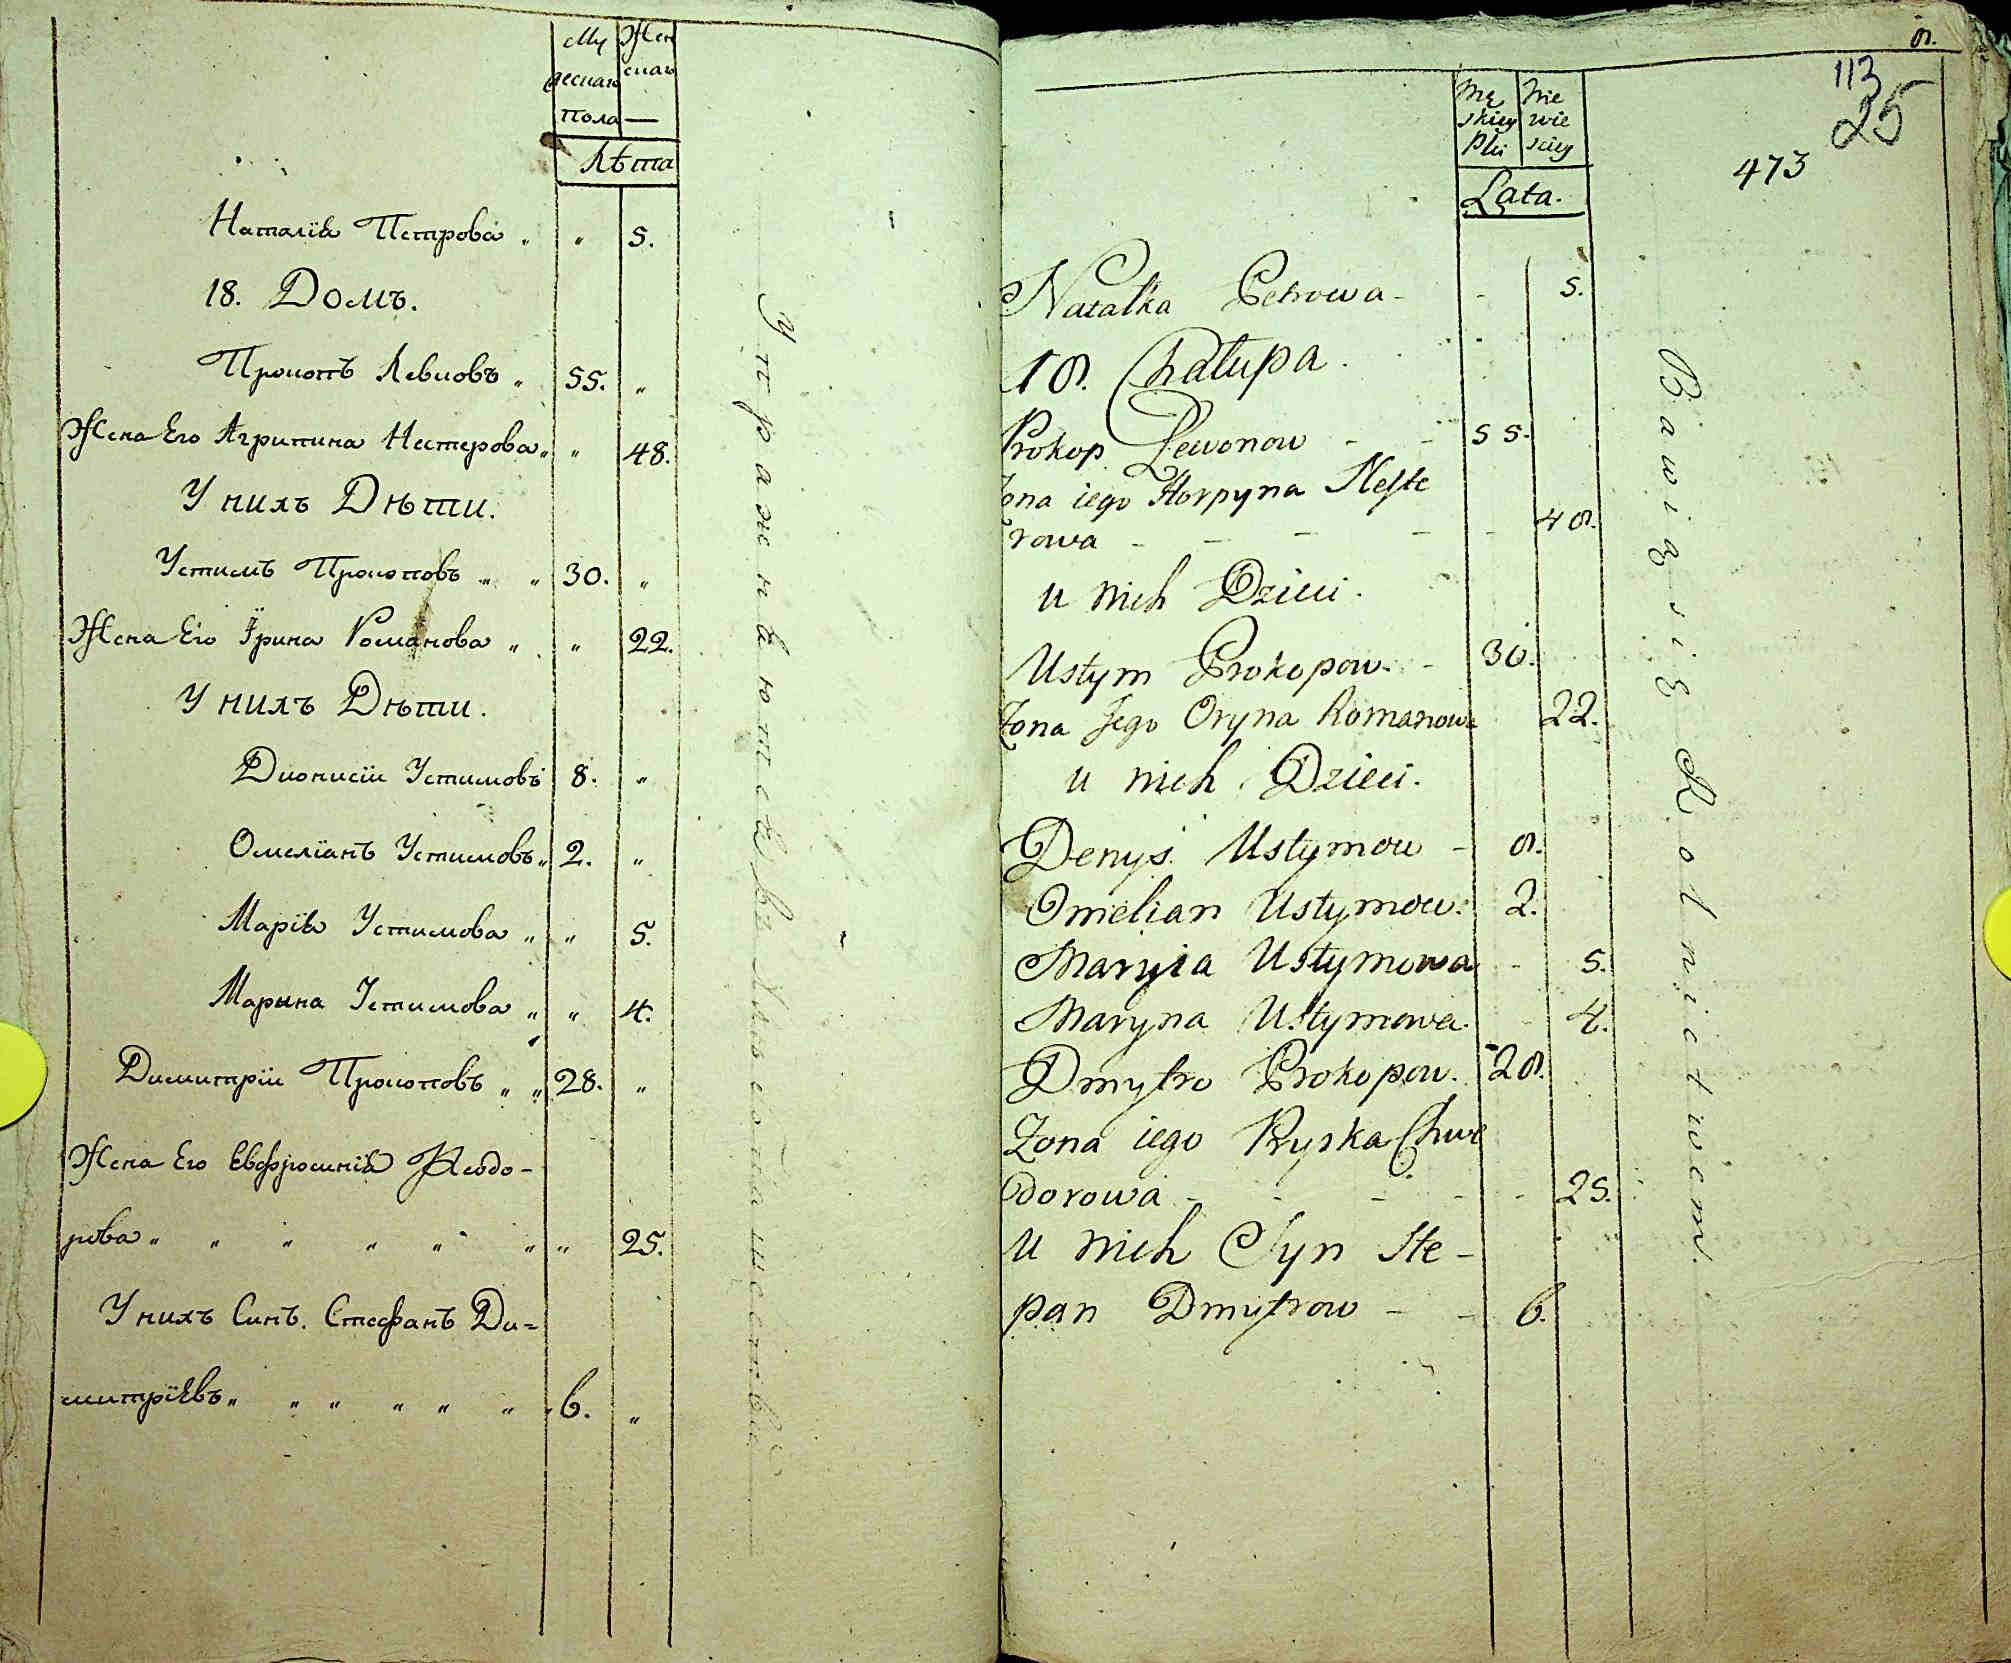 Му Жен
жескаго скаго
пола —
Лѣта
Наталіѧ Петрова „ „ 5.
18. Домъ.
Прокопъ Левковъ „ 55. „
Жена Его Агрипина Нестерова „ „ 48.
У нихъ Дѣти.
Устимъ Прокоповъ „ „ 30. „
Жена Его Ірина Романова „ „ 22.
У нихъ Дѣти.
Дионисіи Устимовъ 8. „
Омеліанъ Устимовъ „ 2. „
Маріѧ Устимова „ „ 5.
Марина Устимова „ „ 4.
Димитріи Прокоповъ „ „ 28. „
Жена Его Евфросиніѧ Ѳеодо-
рова „ „ „ „ „ „ „ 25.
У нихъ Синъ Стефанъ Ди=
митріевъ „ „ „ „ „ „ 6. „
Упражнѧютсѧ въ
8.
113
25
473
Mę Nie
skiey wie
Płci sciey
Lata.
Natalka Petrowa - - 5.
18. Chałupa.
Prokop Lewonow - - 55.
Żona iego Horpyna Neste
rowa - - - - - 48.
u nich Dzieci.
Ustym Prokopow. - 30.
Żona Jego Oryna Romanowa 22.
u nich Dzieci.
Denys Ustymow - 8.
Omelian Ustymow. 2.
Maryia Ustymowa - 5.
Maryna Ustymowa. - 4.
Dmytro Prokopow. - 28.
Żona iego Pryska Chwe
dorowa - - - - - 25.
u nich Syn Ste-
pan Dmytrow - - 6.
Bawią się Rolnictwem.